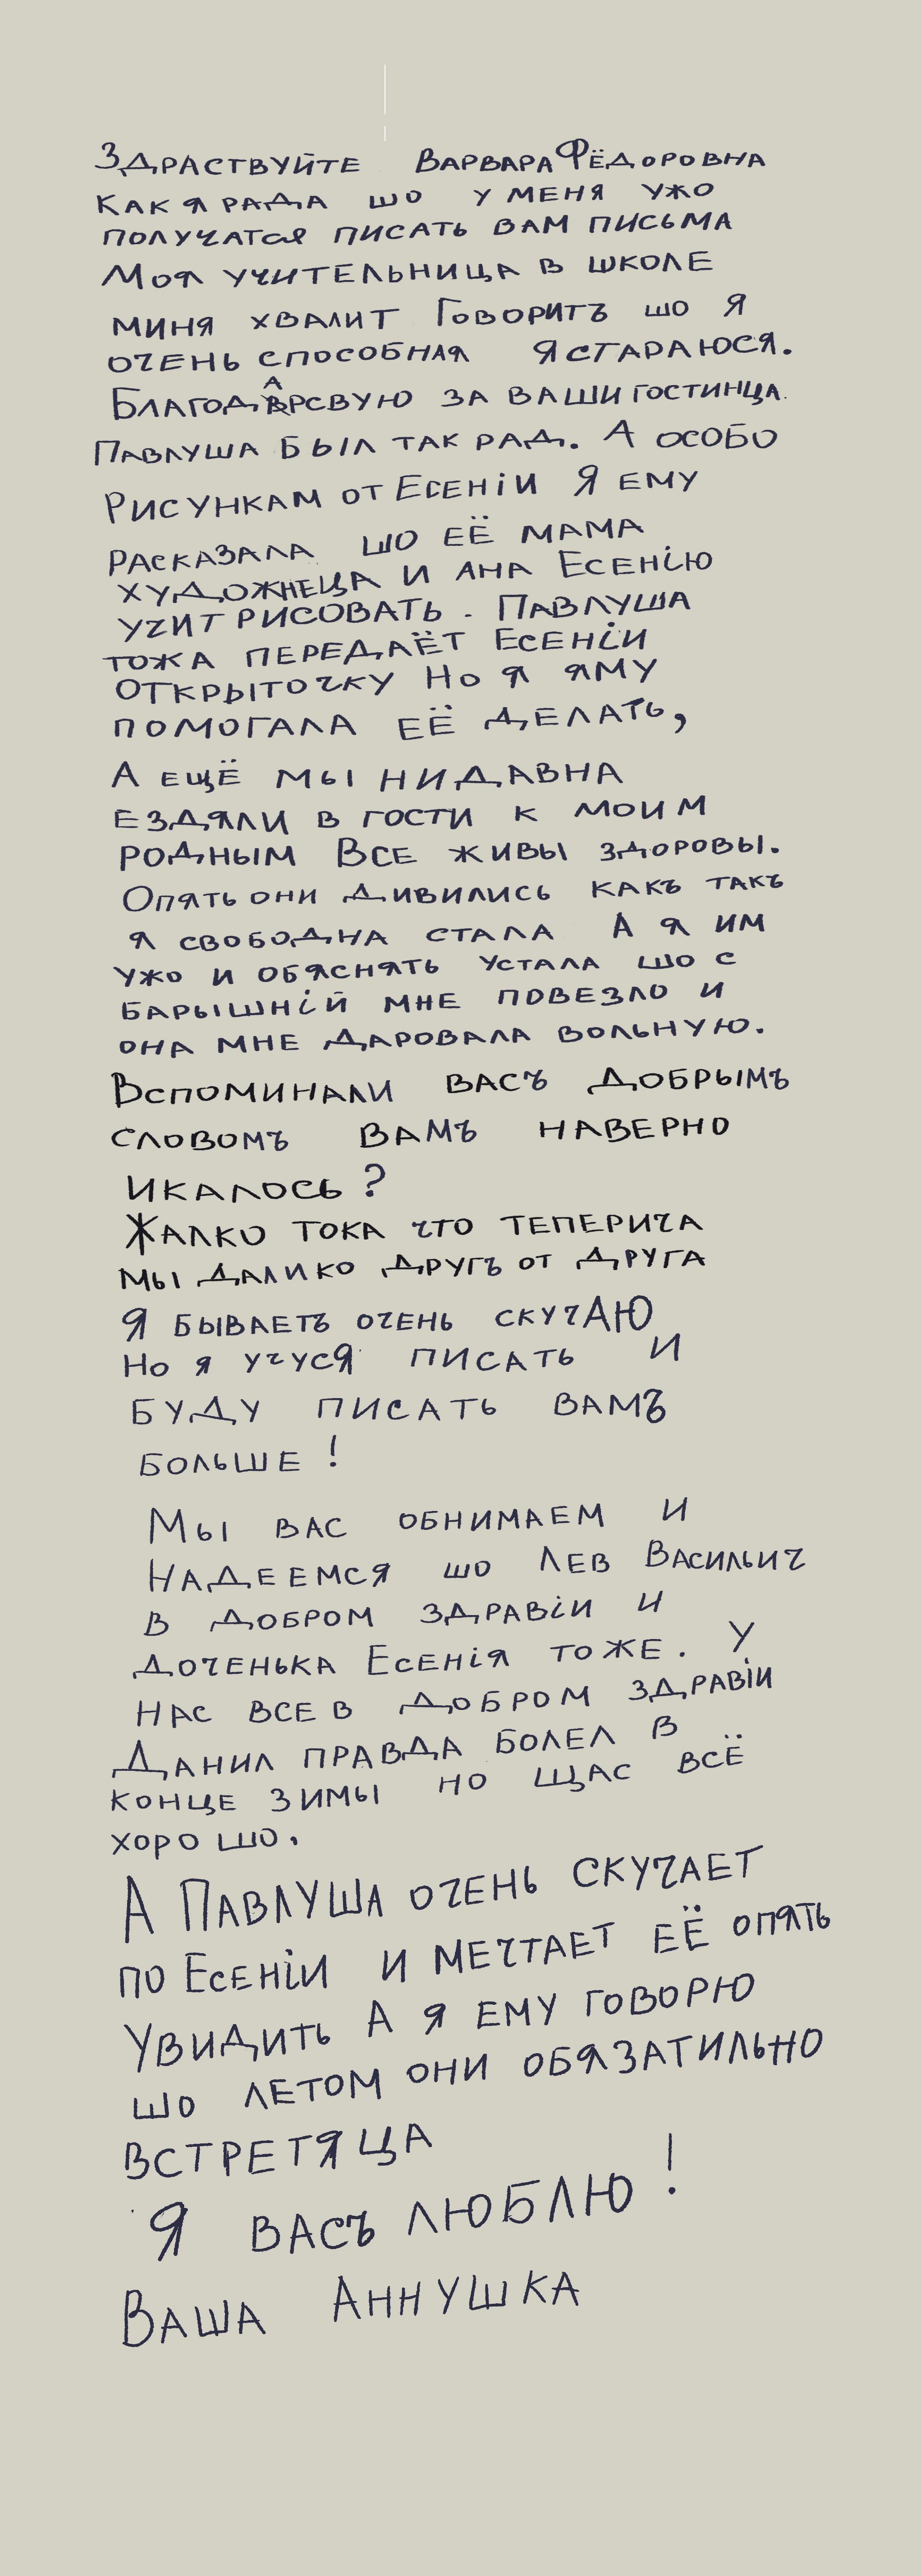 Здраствуйте Варвара Фёдоровна
Как я рада шо у меня ужо
получатся писать вам письма
Моя учительница в школе
миня хвалит Говоритъ шо я
очень способная Я стараюся.
Благодарсвую за ваши гостинца.
Павлуша был так рад. А особо
Рисункам от Есенiи Я ему
расказала шо её мама
художнеца и ана Есенiю
учит рисовать. Павлуша
тожа передаёт Есенiи
открыточку Но я яму
помогала её делать,
А ещё мы нидавна
ездяли в гости к моим
родным Все живы здоровы.
Опять они дивились какъ такъ
я свободна стала А я им
ужо и обяснять устала шо с
барышнiй мне повезло и
она мне даровала вольную.
Вспоминали васъ добрымъ
словомъ вамъ наверно
икалось?
Жалко тока что теперича
мы далико другъ от друга
Я бываетъ очень скучаю
Но я учуся писать и
буду писать вамъ
больше!
Мы вас обнимаем и
Надеемся шо Лев Васильич
в добром здравiи и
доченька Есенiя тоже. У
нас все в добром здравiи
Данил правда болел в
конце зимы но щас всё
хорошо.
А Павлуша очень скучает
по Есенiи и мечтает её опять
увидить А я ему говорю
шо летом они обязатильно
встретяца
Я васъ люблю!
Ваша Аннушка